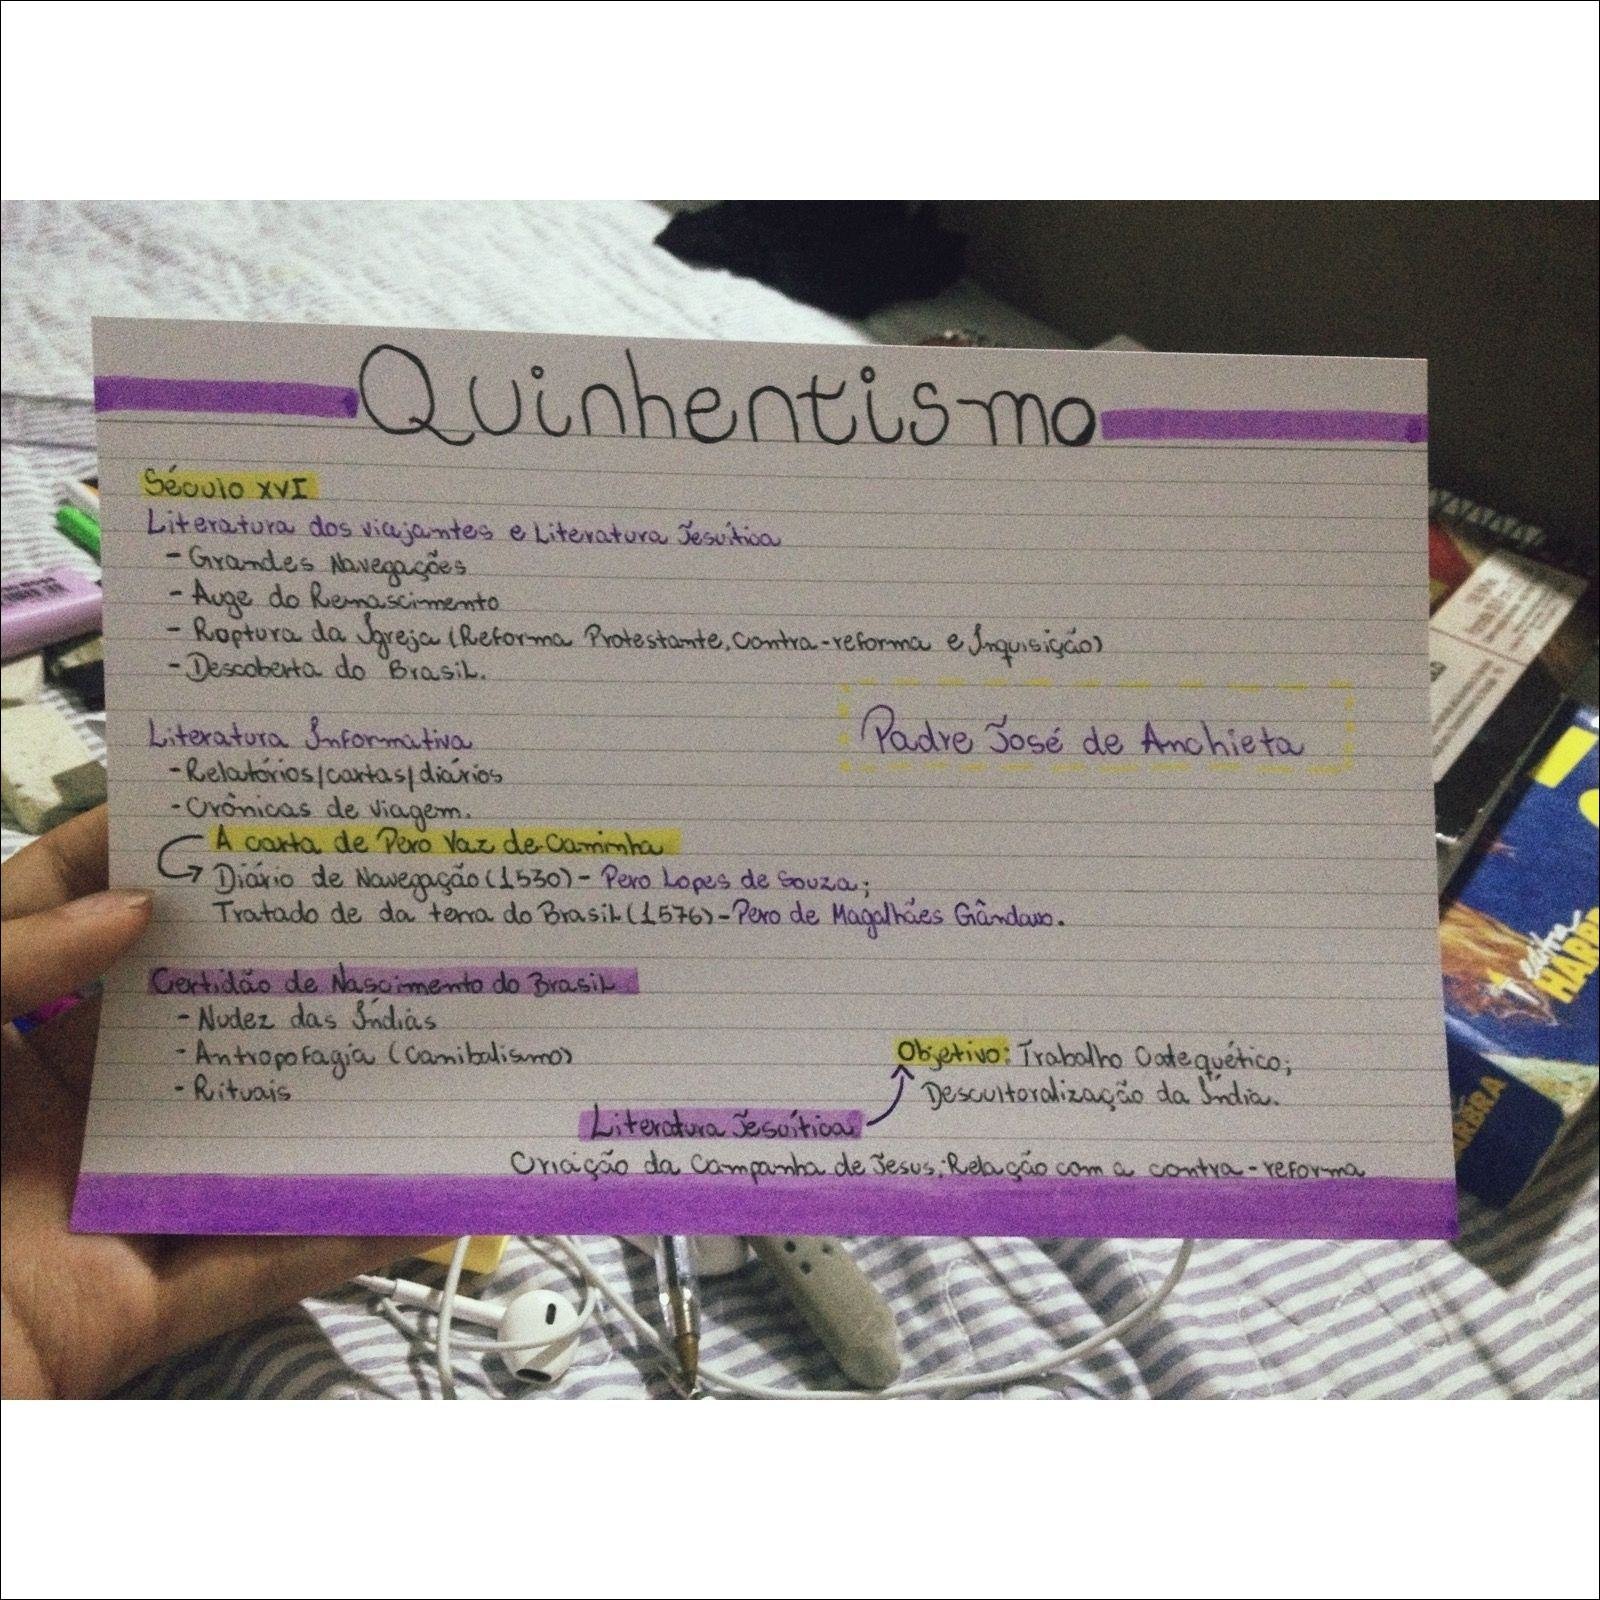 Quinhentismo
Século XVI
Literatura dos viajantes e Literatura Jesuítica
- Grandes Navegações
- Auge do Renascimento
- Roptura da Igreja (Reforma Protestante, Contra-reforma e Inquisição)
- Descoberta do Brasil.
Padre José de Anchieta
Literatura Informativa
- Relatórios/cartas/diários
- Crônicas de viagem.
A carta de Pero Vaz de Caminha
Diário de Navegação (1530) - Pero Lopes de Souza;
Tratado de da terra do Brasil (1576) - Pero de Magalhães Gândavo.
Certidão de Nascimento do Brasil
- Nudez das Índias
- Antropofagia (Canibalismo)
- Rituais
Objetivo: Trabalho Catequético;
Descultoralização da Índia.
Literatura Jesuítica
Criação da Campanha de Jesus; Relação com a contra-reforma